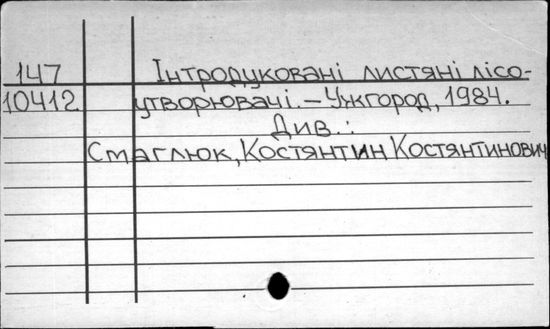 147 Інтродуковані листяні лісо-
10412 утворювачі. – Ужгород, 1984.
Див.:
Смаглюк, Костянтин Костянтинович